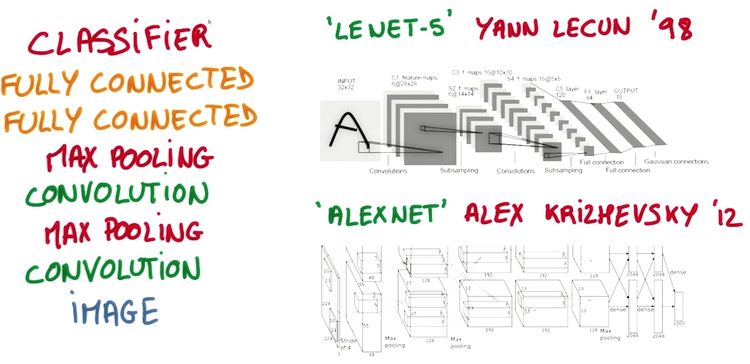 CLASSIFIER
FULLY CONNECTED
FULLY CONNECTED
MAX POOLING
CONVOLUTION
MAX POOLING
CONVOLUTION
IMAGE
'LENET-5' YANN LECUN '98
INPUT
32x32
C1: feature maps
6@28x28
S2: f. maps
6@14x14
C3: f. maps 16@10x10
S4: f. maps 16@5x5
C5: layer
120
F6: layer
84
OUTPUT
10
A
Convolutions
Subsampling
Convolutions
Subsampling
Full connection
Full connection
Gaussian connections
'ALEXNET' ALEX KRIZHEVSKY '12
48
128
192
192
128
2048
2048
dense
224
55
27
13
13
13
dense
dense
1000
224
Stride
of 4
55
48
Max
pooling
128
Max
pooling
192
192
128
Max
pooling
2048
2048